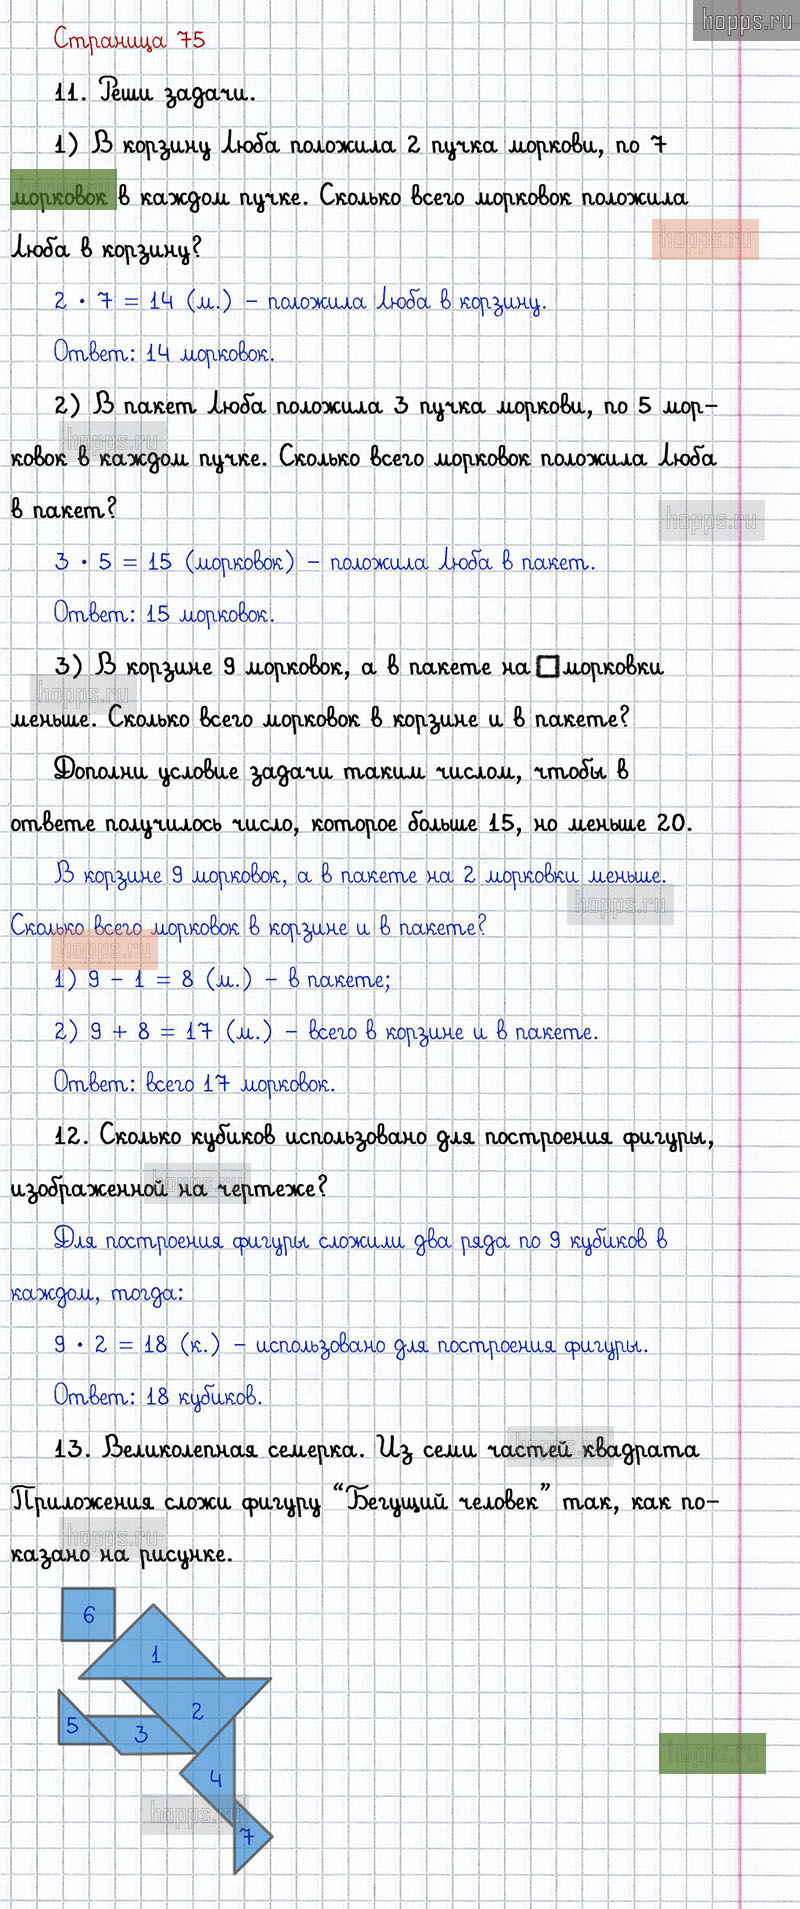 hopps.ru
Страница 75
11. Реши задачи.
1) В корзину Люба положила 2 пучка моркови, по 7
морковок в каждом пучке. Сколько всего морковок положила
hopps.ru
Люба в корзину?
2 · 7 = 14 (м.) – положила Люба в корзину.
Ответ: 14 морковок.
2) В пакет Люба положила 3 пучка моркови, по 5 мор-
hopps.ru
ковок в каждом пучке. Сколько всего морковок положила Люба
в пакет?
hopps.ru
3 · 5 = 15 (морковок) – положила Люба в пакет.
Ответ: 15 морковок.
3) В корзине 9 морковок, а в пакете на □ морковки
hopps.ru
меньше. Сколько всего морковок в корзине и в пакете?
Дополни условие задачи таким числом, чтобы в
ответе получилось число, которое больше 15, но меньше 20.
В корзине 9 морковок, а в пакете на 2 морковки меньше.
hopps.ru
Сколько всего морковок в корзине и в пакете?
hopps.ru
1) 9 – 1 = 8 (м.) – в пакете;
2) 9 + 8 = 17 (м.) – всего в корзине и в пакете.
Ответ: всего 17 морковок.
12. Сколько кубиков использовано для построения фигуры,
hopps.ru
изображенной на чертеже?
Для построения фигуры сложили два ряда по 9 кубиков в
каждом, тогда:
9 · 2 = 18 (к.) – использовано для построения фигуры.
Ответ: 18 кубиков.
13. Великолепная семерка. Из семи частей квадрата
hopps.ru
Приложения сложи фигуру “Бегущий человек” так, как по-
hopps.ru
казано на рисунке.
6
1
2
5
3
hopps.ru
4
hopps.ru
7